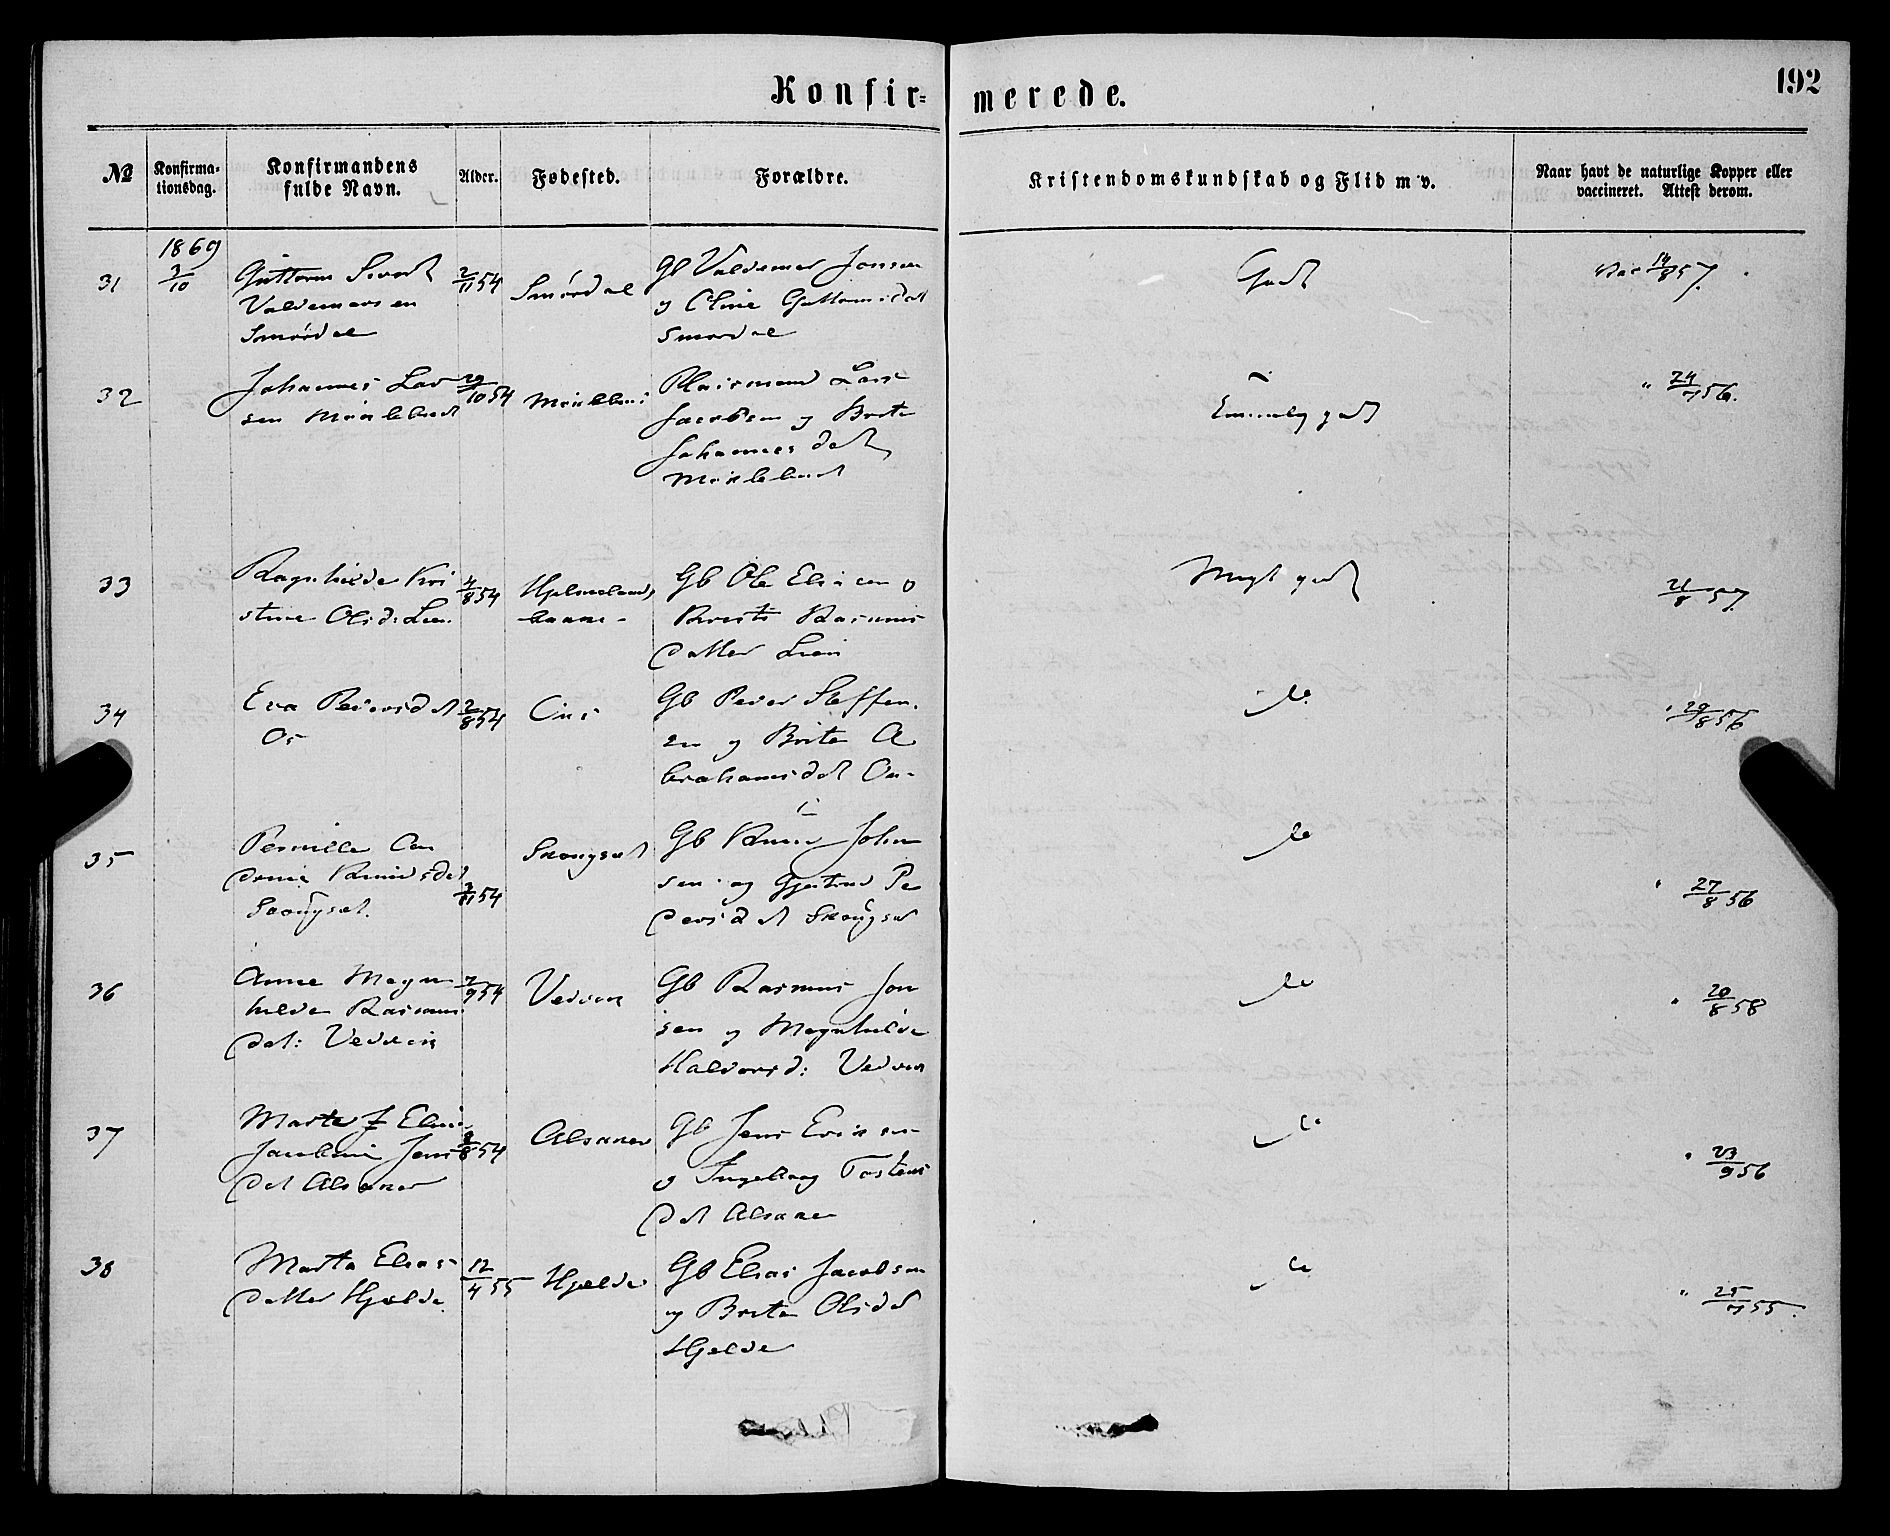 Konfir=
merede.
192
№
Konfirma-
tionsdag.
Konfirmandens
fulde Navn.
Alder.
Fødested.
Forældre.
Kristendomskundskab og Flid m. v.
Naar havt de naturlige Kopper eller
vaccineret. Attest derom.
1869
31
3/10
Guttorm
Valdemarsen
Smørdal
2/11 54
Smørdal
Gb Valdemar Jonsen
og Oline Guttormsdat
Smørdal
Godt
14/8 57.
32
Johannes Lar
sen
54
Pladsmand Lars
Jacobsen og Brite
Johannesdat
godt
24/7 56.
33
Ragnhilde Kri
stine Olsd: Lien.
4/8 54
Gb Ole Elisen og
Brite Rasmus
datter Lien
Meget godt
21/8 57.
34
Eva Pedersdat
Os
2/8 54
Gb Peder Steffen.
sen og Brite A
brahamsdat
do
29/8 56
35
Pernille An
drine Knudsdat
Skougset.
54
Skougset
Gb Knud John
sen og Gjertrud Pe
dersdat Skougset
do
27/8 56
36
Anne Magn
hilde Rasmus
dat: Vedvik
7/9 54
Gb Rasmus Jon
sen og Magnhilde
Halvorsd: Vedvik
do
20/8 58
37
Marte
Jacobine Jens
dat Alsaker
54
Alsaker
Gb Jens Eriksen
og Ingeborg Tostens
dat Alsaker
do
23/9 56
38
Marta Elias
datter Hjelde
12/4 55
Hjelde
Gb Elias Jacobsen
og Brite Olsdat
Hjelde
do
25/7 55.